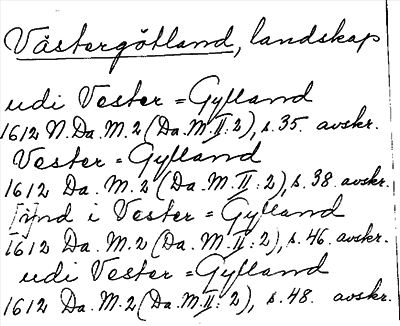 Västergötland, landskap
udi Vester = Gylland
1612 N.Da.M.2 (Da.M.II:2), s.35. avskr.
Vester = Gylland
1612 Da.M.2 (Da.M.II:2), s.38. avskr.
[i]nd i Vester = Gylland
1612 Da.M.2 (Da.M.II:2), s.46. avskr.
udi Vester = Gylland
1612 Da.M.2 (Da.M.II:2), s.48. avskr.